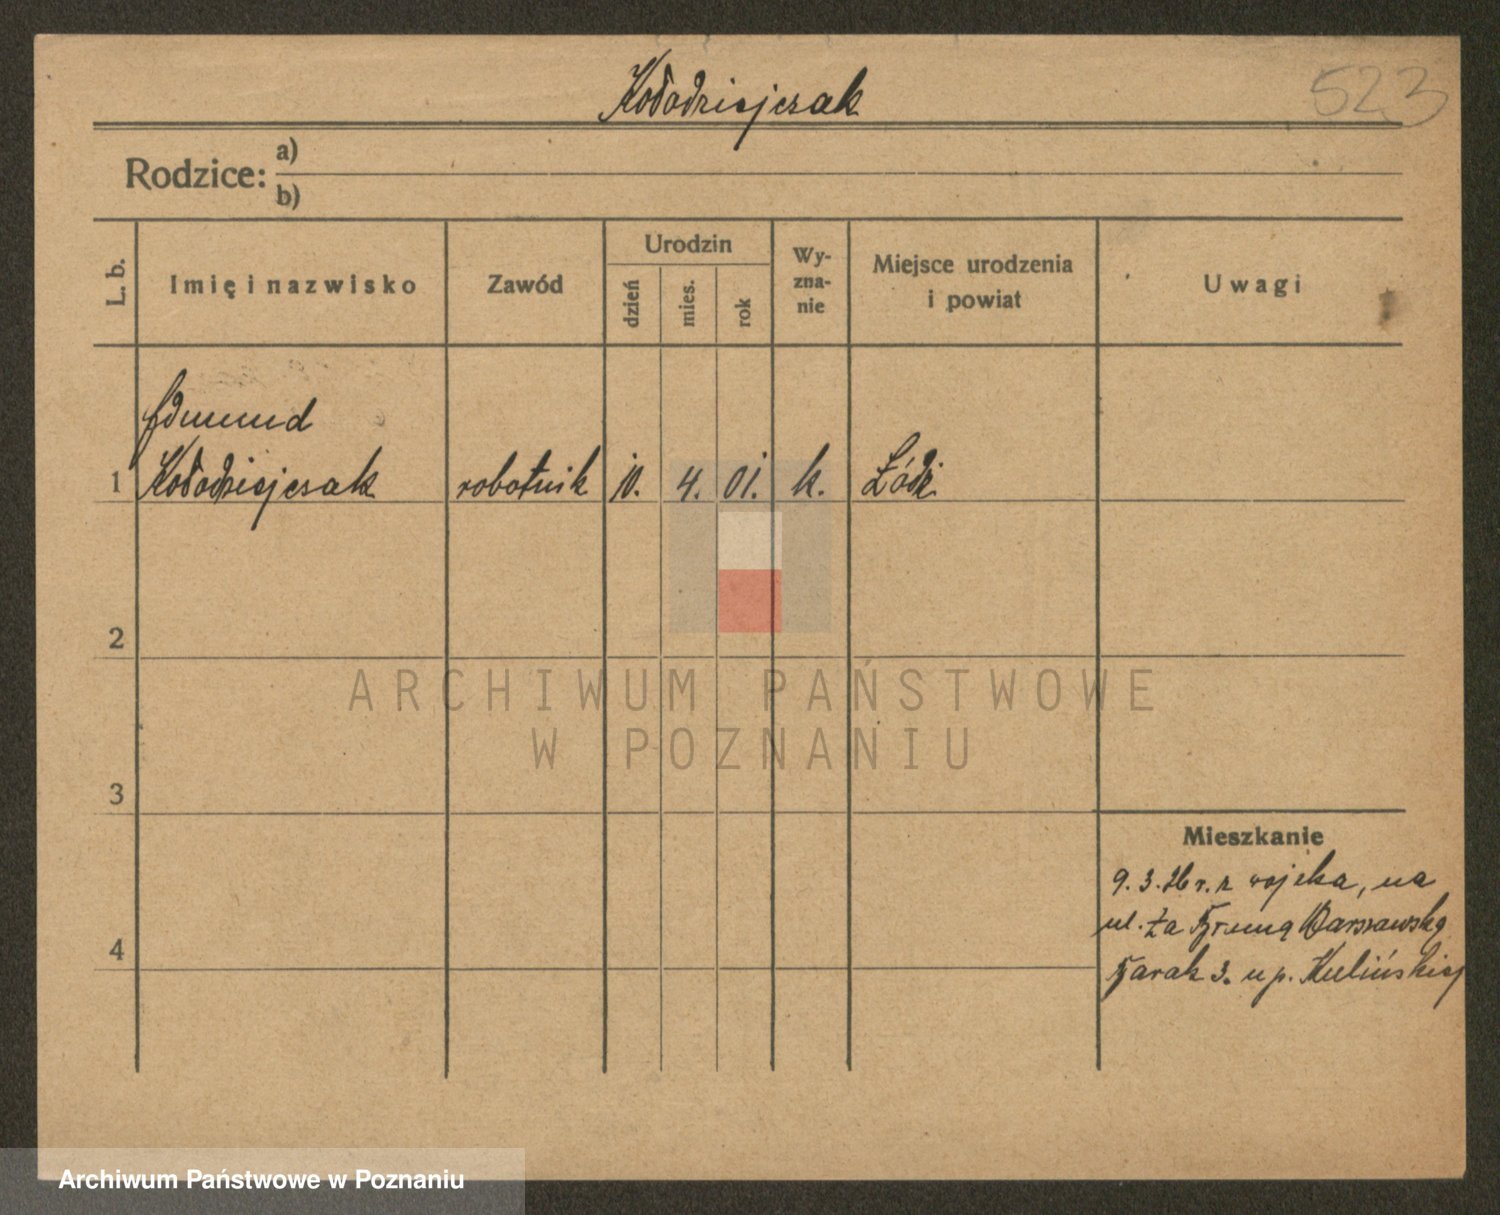 Kołodziejczak
523
Rodzice: a)
b)
L. b.
Imię i nazwisko
Zawód
Urodzin
dzień
mies.
rok
Wy-
zna-
nie
Miejsce urodzenia
i powiat
Uwagi
Edmund
1 Kołodziejczak robotnik 10. 4. 01. k. Łódź
2
ARCHIWUM PAŃSTWOWE
W POZNANIU
3
Mieszkanie
9.3.26 r. z wojska, na
ul. Za Bramą Warszawską
4
barak 3. u p. Kulińskiej
Archiwum Państwowe w Poznaniu